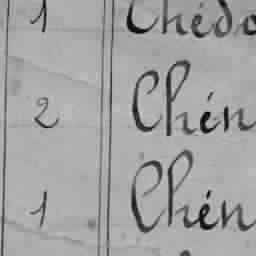 1 Chédo
2 Chén
1 Chén